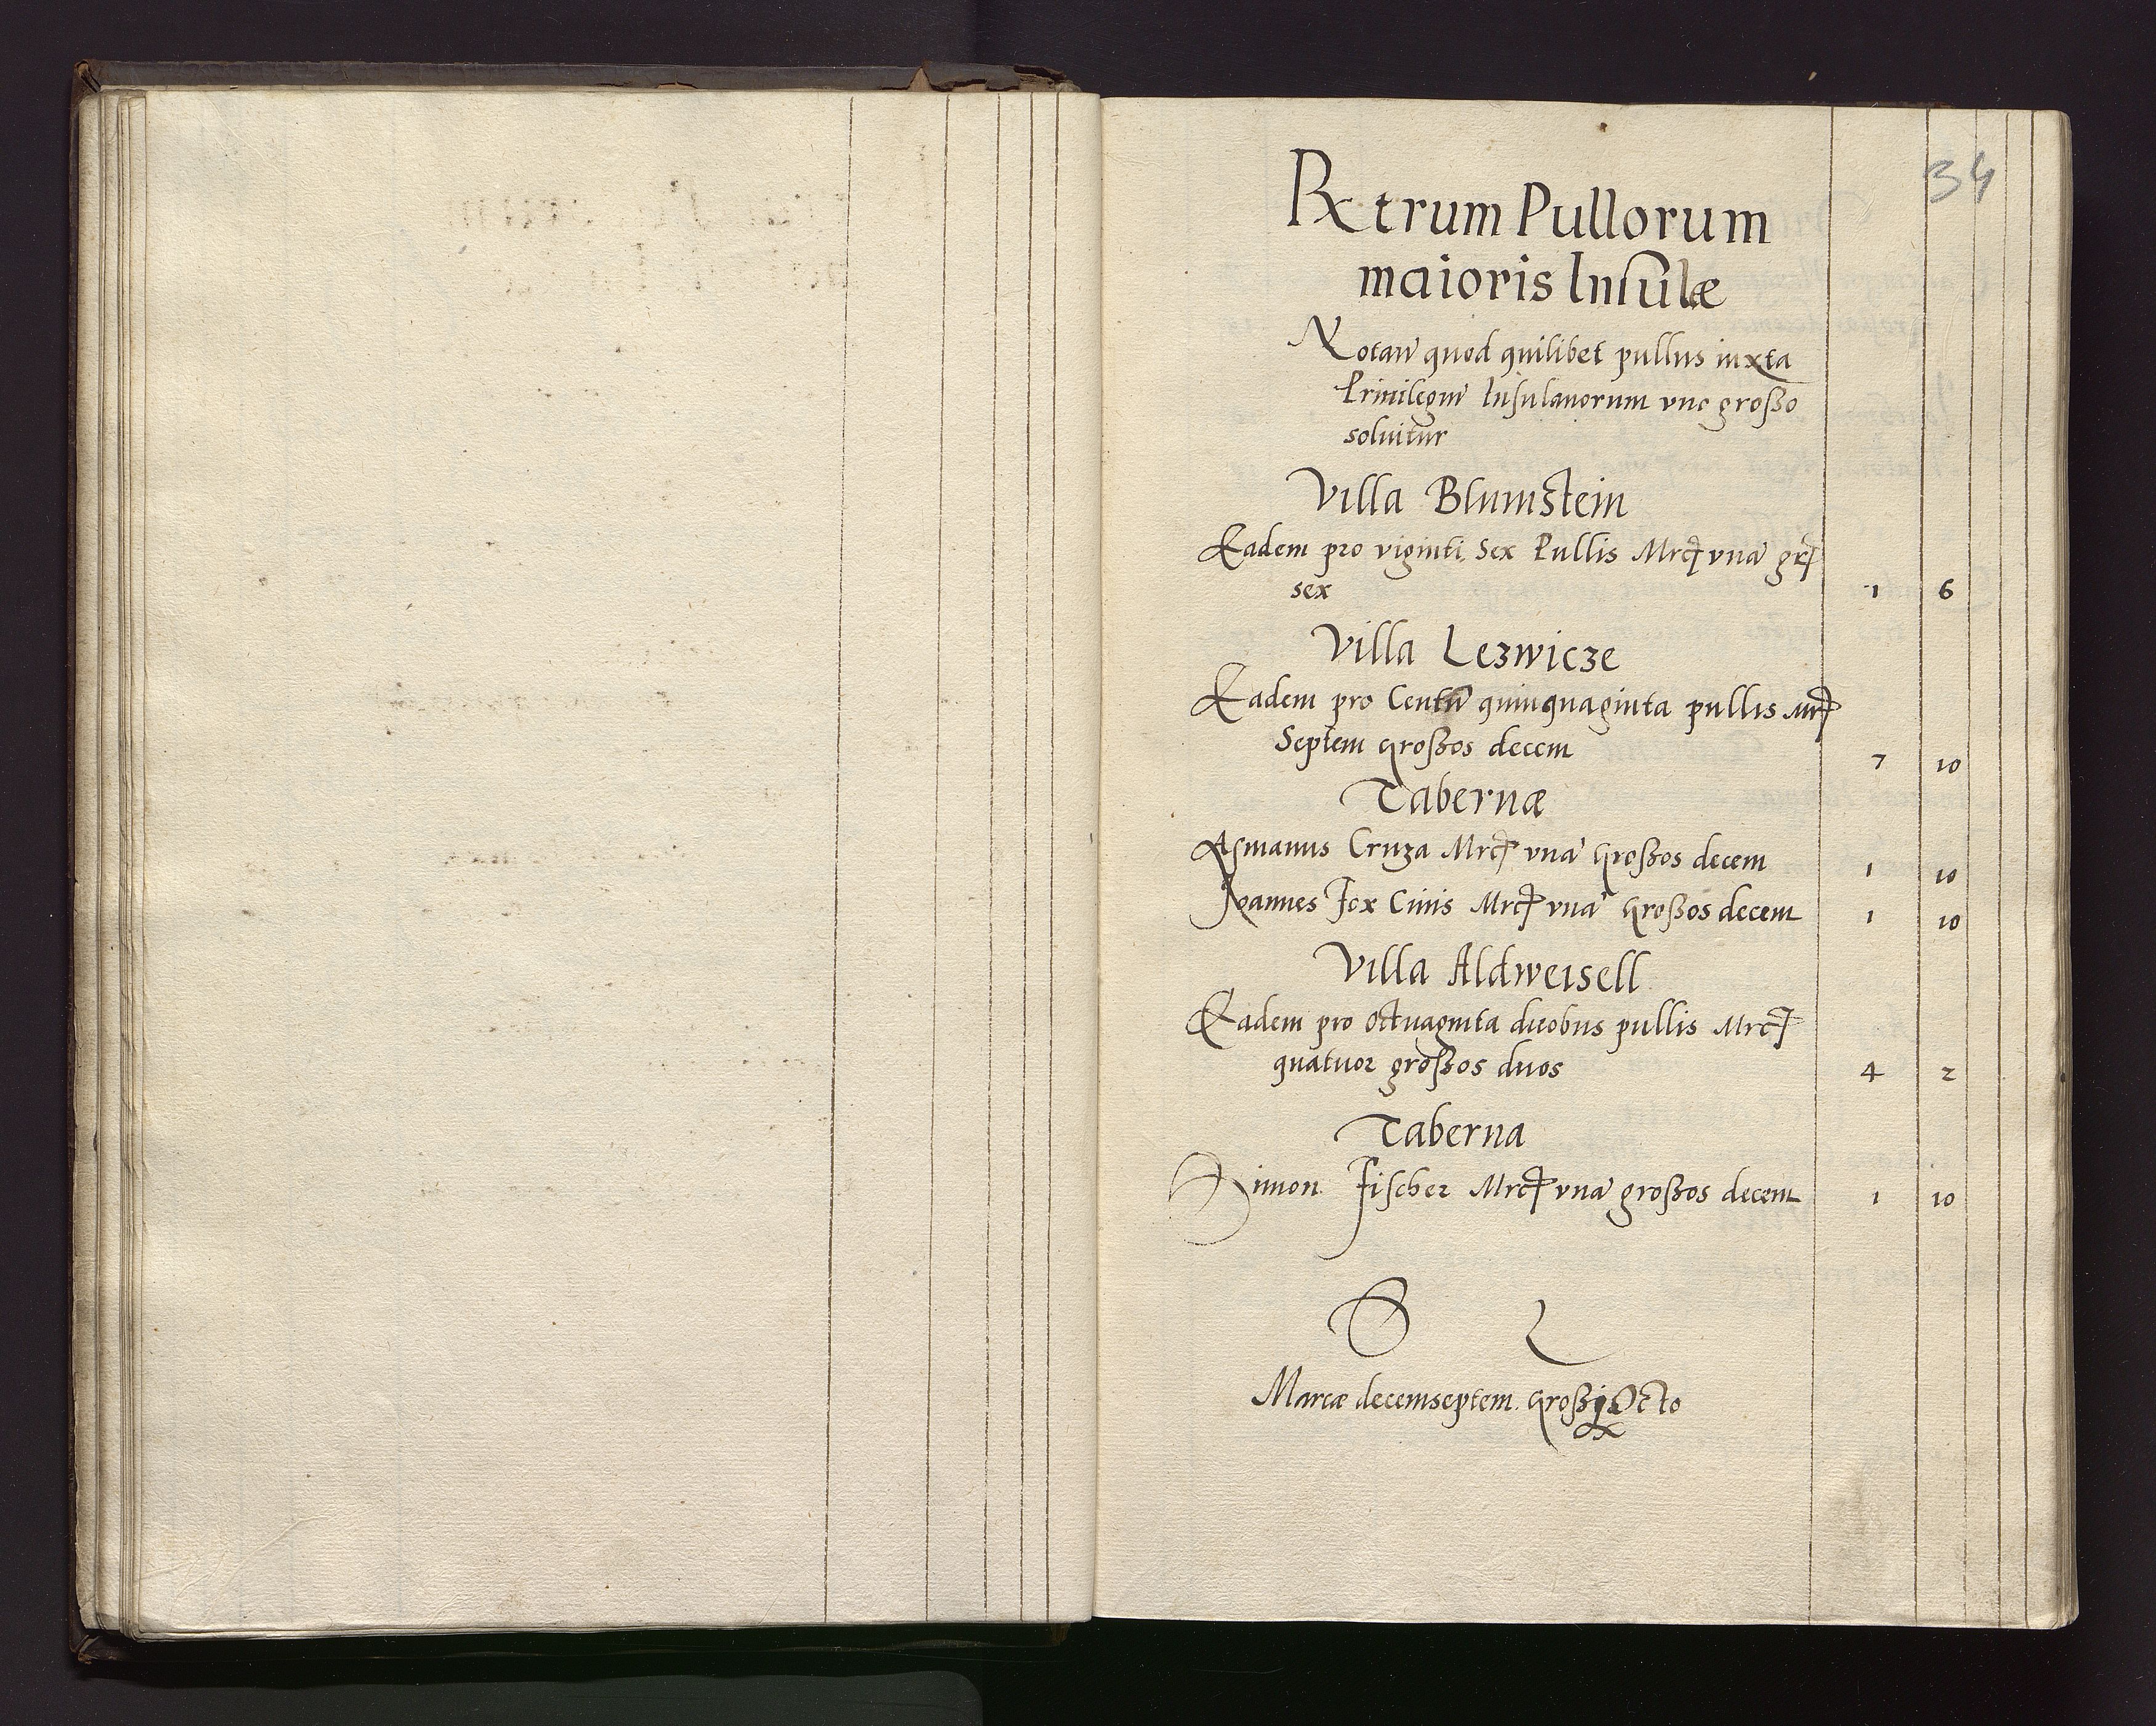 34
Rx trum Pullorum
maioris Insulæ
Notan̄ quod quilibet pullus iuxta
Priuilegiu̅ Insulanorum vno großo
soluitur
Villa Blumstein
Eadem pro viginti Sex Pullis Mrcꝭ vna̅ grꝭ
sex 1 6
Villa Lezwicze
Eadem pro Centu̅ quinquaginta pullis Mrꝭ
Septem großos decem 7 10
Tabernæ
Asmanus Cruza Mrcꝭ vna̅ großos decem 1 10
Joannes Fox Ciuis Mrcꝭ vna̅ großos decem 1 10
Villa Aldweisell
Eadem pro octuaginta duobus pullis Mrcꝭ
quatuor großos duos 4 2
Taberna
Simon Fischer Mrcꝭ vna̅ großos decem 1 10
S L
Marcæ decemseptem großi Octo